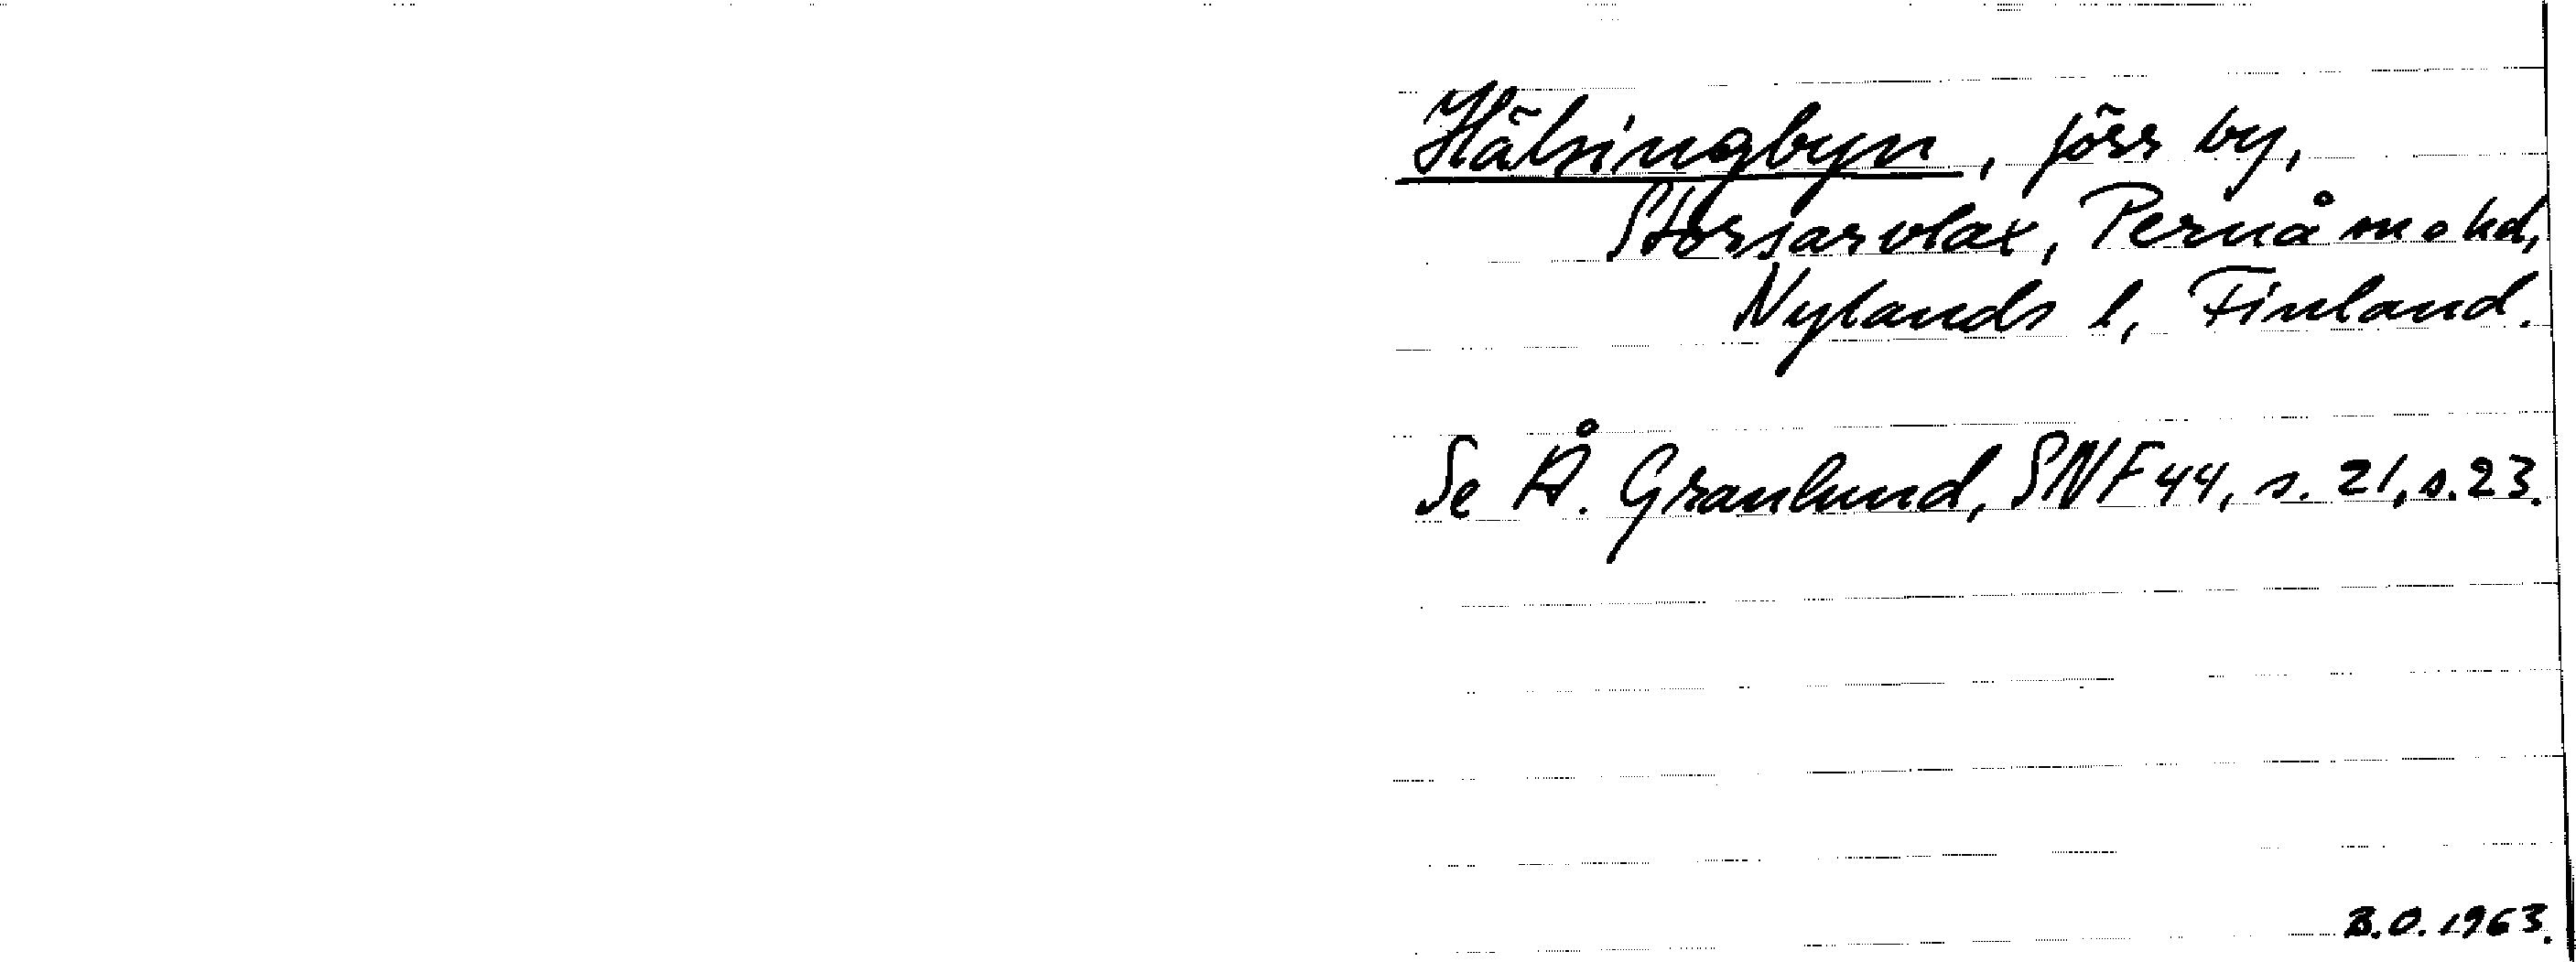 Hälsingbyn, förr by,
Storsarvlax, Pernå sn o hd,
Nylands l, Finland.
Se Å. Granlund, SNF 44, s. 21, s. 23.
B.O. 1963.